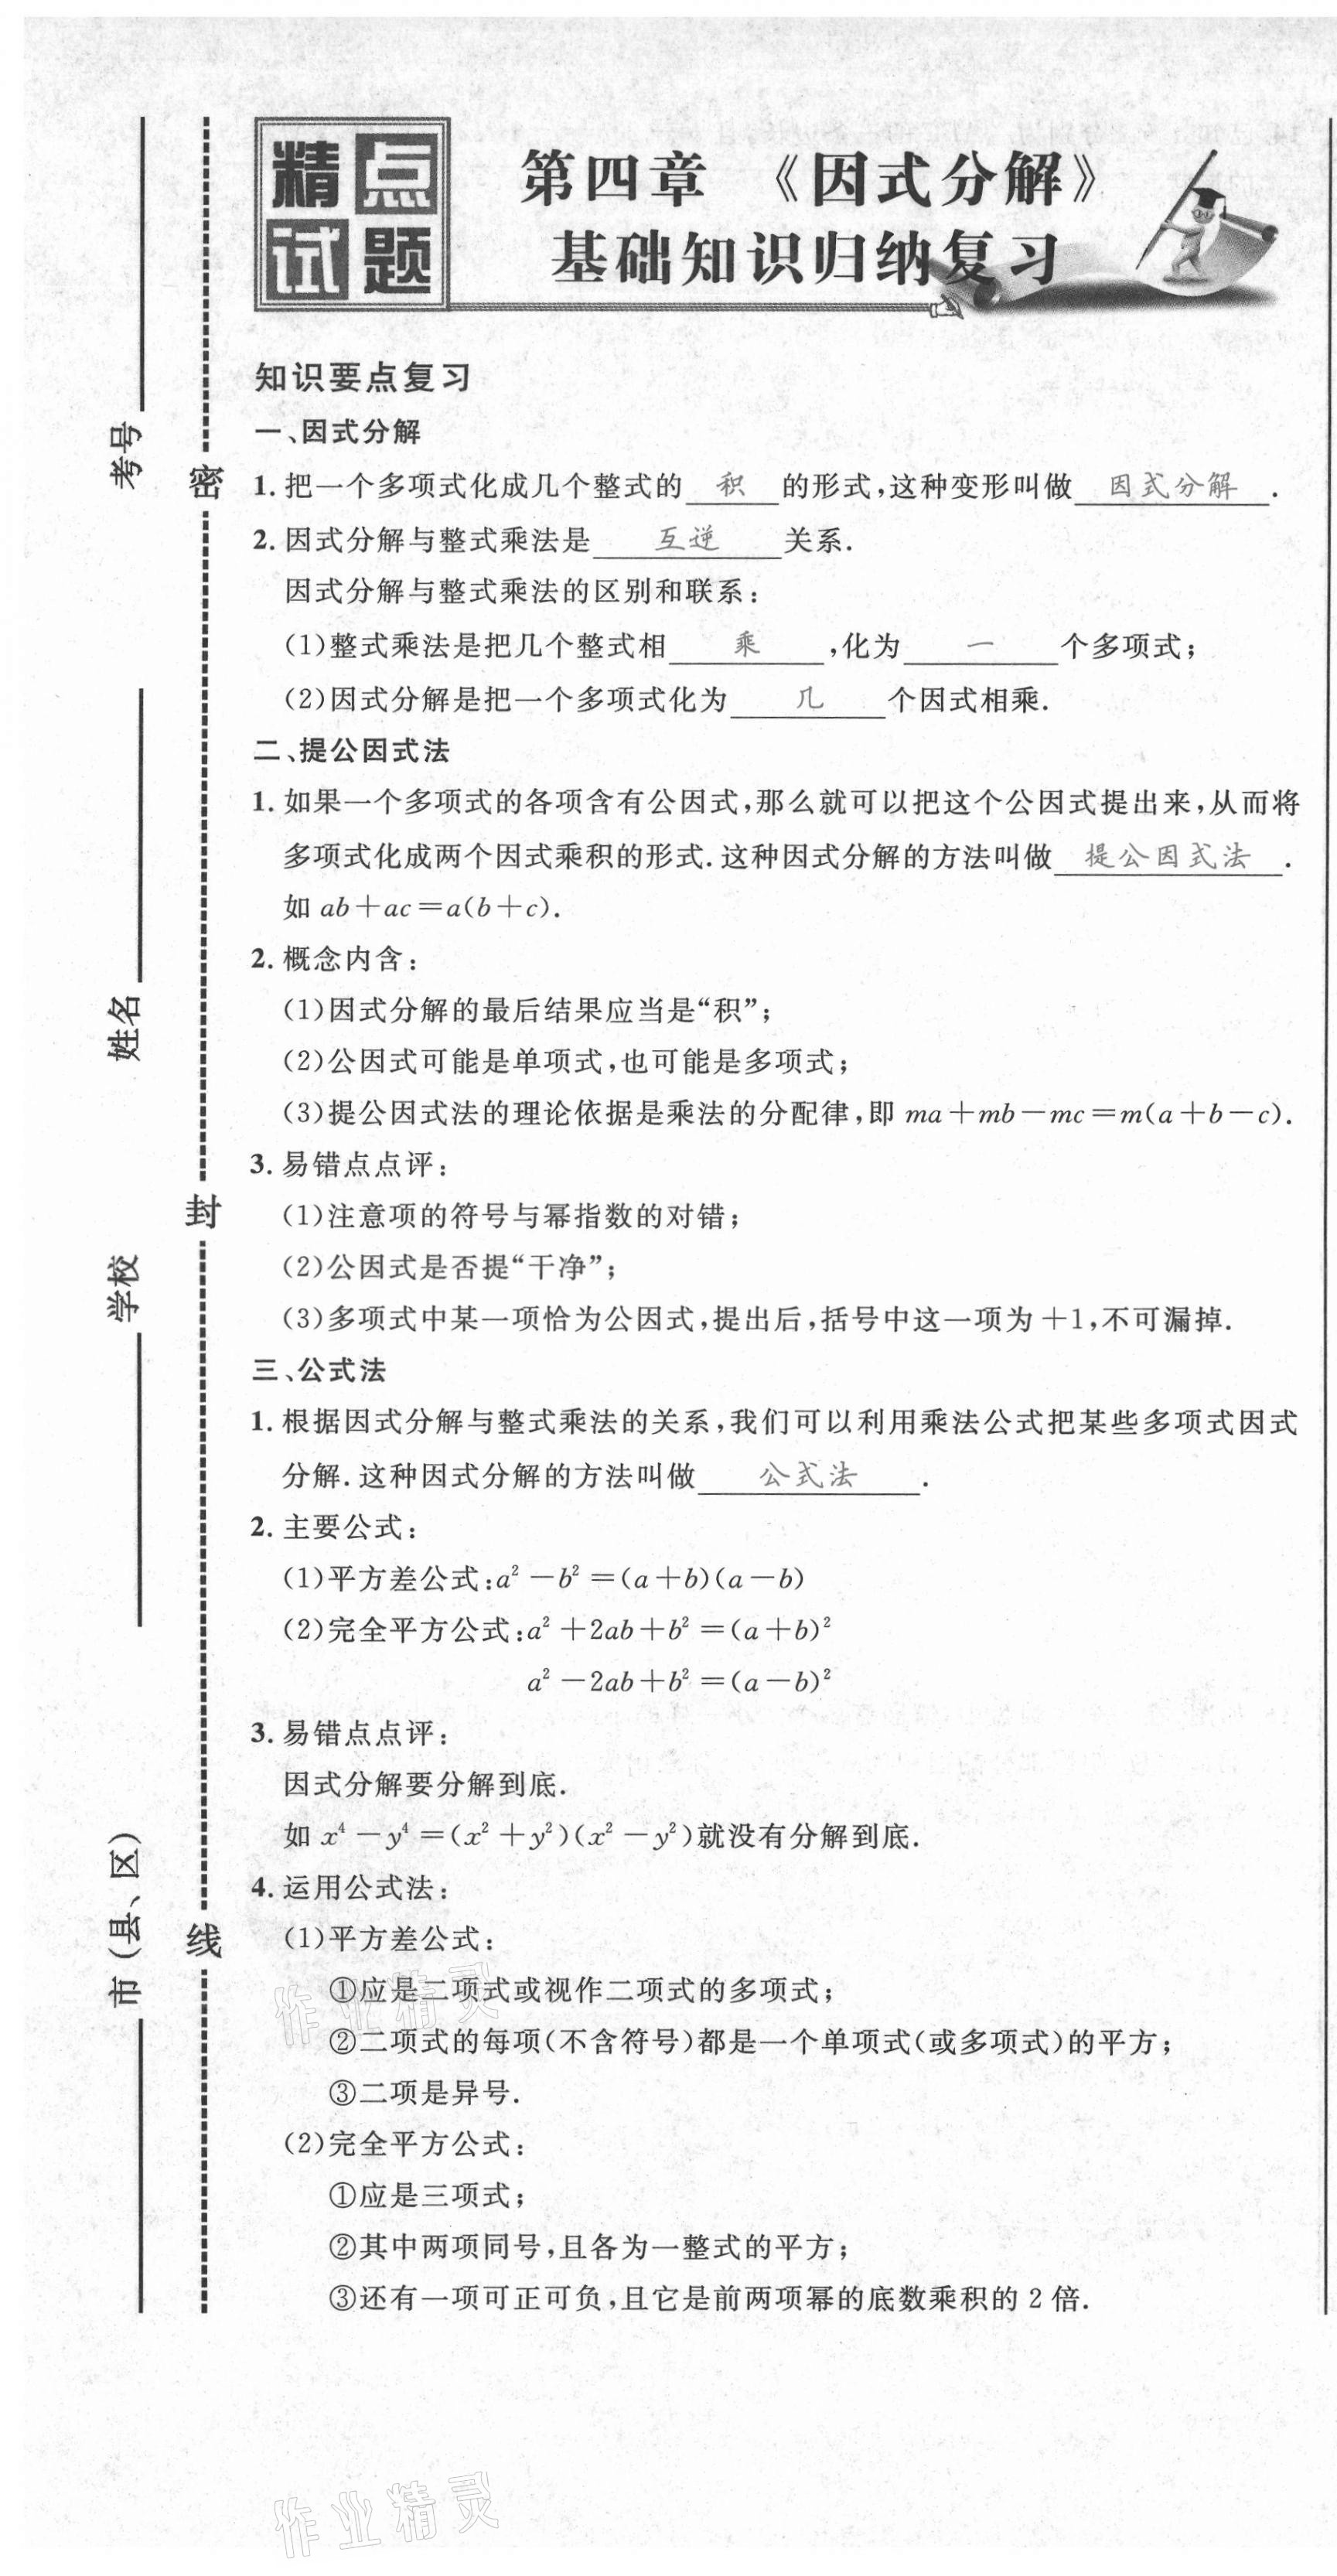 精点
试题
第四章 《因式分解》
基础知识归纳复习
知识要点复习
一、因式分解
1. 把一个多项式化成几个整式的 积 的形式,这种变形叫做 因式分解 .
2. 因式分解与整式乘法是 互逆 关系.
因式分解与整式乘法的区别和联系:
(1)整式乘法是把几个整式相 乘 ,化为 一 个多项式;
(2)因式分解是把一个多项式化为 几 个因式相乘.
二、提公因式法
1. 如果一个多项式的各项含有公因式,那么就可以把这个公因式提出来,从而将
多项式化成两个因式乘积的形式.这种因式分解的方法叫做 提公因式法 .
如 ab+ac=a(b+c).
2. 概念内含:
(1)因式分解的最后结果应当是“积”;
(2)公因式可能是单项式,也可能是多项式;
(3)提公因式法的理论依据是乘法的分配律,即 ma+mb-mc=m(a+b-c).
3. 易错点点评:
(1)注意项的符号与幂指数的对错;
(2)公因式是否提“干净”;
(3)多项式中某一项恰为公因式,提出后,括号中这一项为+1,不可漏掉.
三、公式法
1. 根据因式分解与整式乘法的关系,我们可以利用乘法公式把某些多项式因式
分解.这种因式分解的方法叫做 公式法 .
2. 主要公式:
(1)平方差公式:a²-b²=(a+b)(a-b)
(2)完全平方公式:a²+2ab+b²=(a+b)²
a²-2ab+b²=(a-b)²
3. 易错点点评:
因式分解要分解到底.
如 x⁴-y⁴=(x²+y²)(x²-y²)就没有分解到底.
4. 运用公式法:
(1)平方差公式:
①应是二项式或视作二项式的多项式;
②二项式的每项(不含符号)都是一个单项式(或多项式)的平方;
③二项是异号.
(2)完全平方公式:
①应是三项式;
②其中两项同号,且各为一整式的平方;
③还有一项可正可负,且它是前两项幂的底数乘积的 2 倍.
市(县、区) 学校 姓名 考号
密 封 线
作业精灵
作业精灵